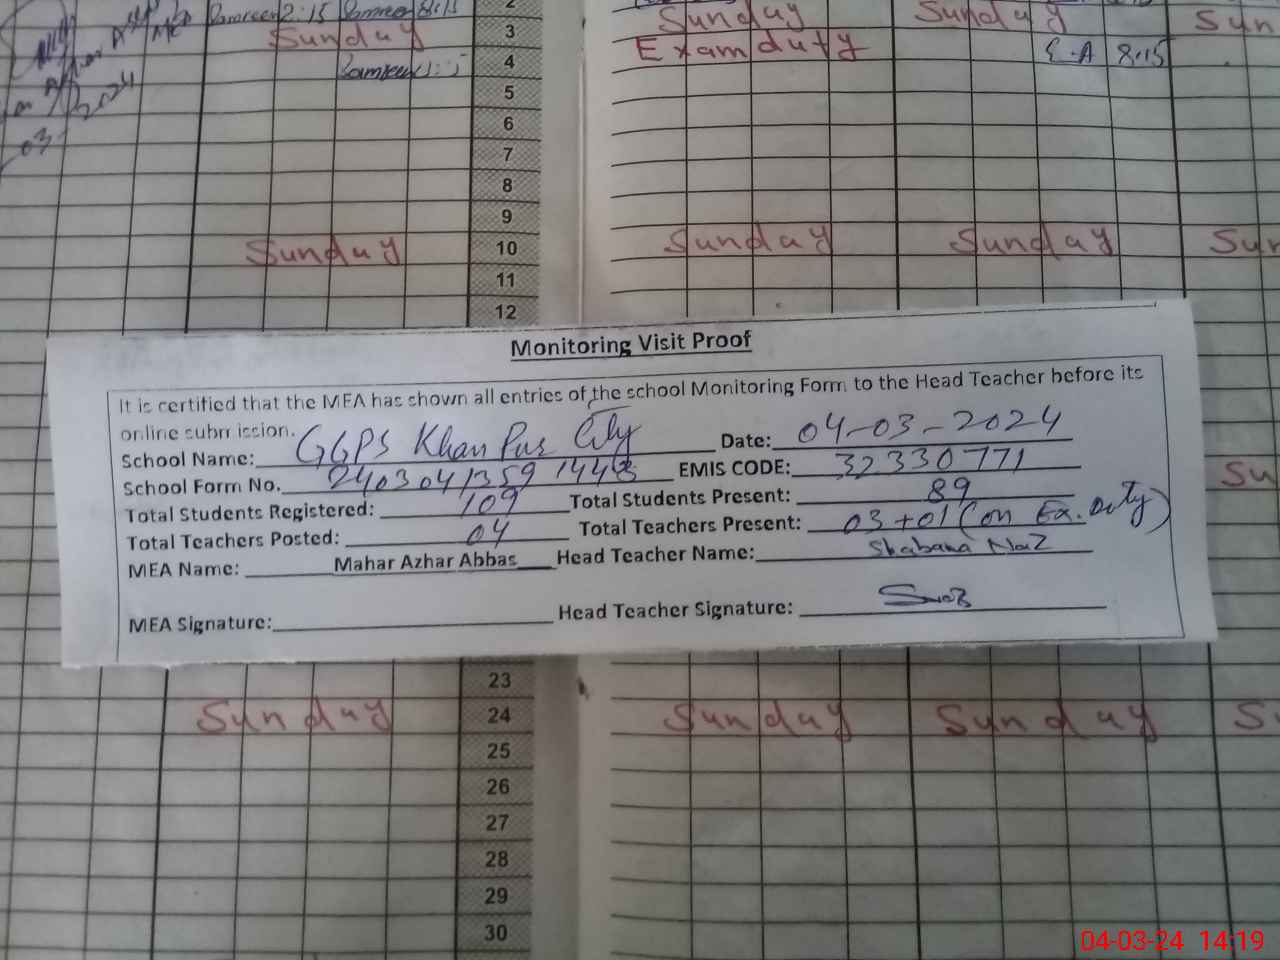 2
Sameer 2:15 Sameer 8:15
Sunday Sunday Sun
Sunday 3
Exam duty
4 E.A 8:15
03- 2024
5
6
7
8
9
Sunday 10 Sunday Sunday Sun
11
12
Monitoring Visit Proof
It is certified that the MEA has shown all entries of the school Monitoring Form to the Head Teacher before its
online submission.
School Name: GGPS Khan Pur City Date: 04-03-2024
School Form No. 24030413591448 EMIS CODE: 32330771
Total Students Registered: 109 Total Students Present: 89
Total Teachers Posted: 04 Total Teachers Present: 03+01 (on Ex. Duty)
MEA Name: Mahar Azhar Abbas Head Teacher Name: Shabana Naz
MEA Signature: Head Teacher Signature:
Su
23
Sunday 24 Sunday Sunday S
25
26
27
28
29
30
04-03-24 14:19